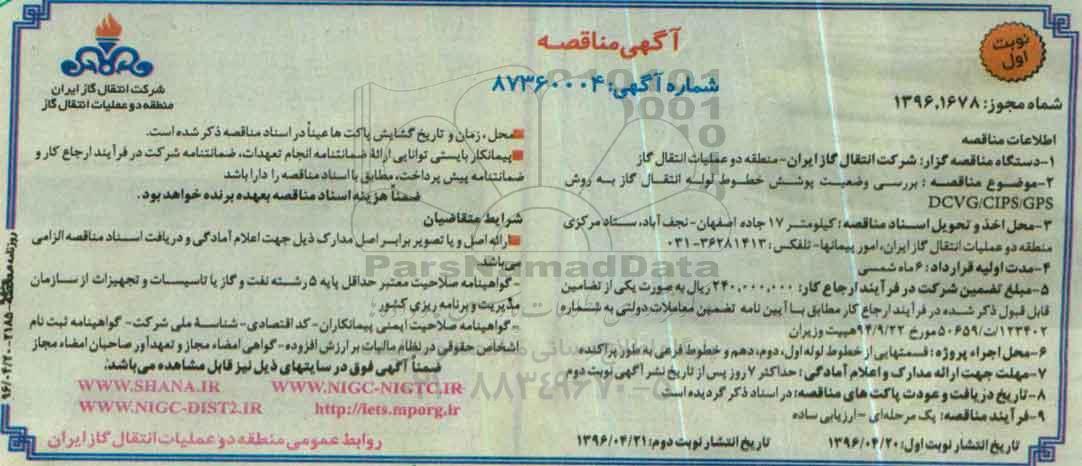 آگهی مناقصه
شماره آگهی: ۸۷۳۶۰۰۰۴
نوبت
اول
شرکت انتقال گاز ایران
منطقه دو عملیات انتقال گاز
شماه مجوز: ۱۳۹۶,۱۶۷۸
اطلاعات مناقصه
۱-دستگاه مناقصه گزار: شرکت انتقال گاز ایران- منطقه دو عملیات انتقال گاز
۲-موضوع مناقصه : بررسی وضعیت پوشش خطوط لوله انتقال گاز به روش
DCVG/CIPS/GPS
۳-محل اخذ و تحویل اسناد مناقصه: کیلومتر ۱۷ جاده اصفهان- نجف آباد، ستاد مرکزی
منطقه دو عملیات انتقال گاز ایران، امور پیمانها- تلفکس: ۳۶۲۸۱۴۱۳-۰۳۱
۴-مدت اولیه قرارداد: ۶ ماه شمسی
۵-مبلغ تضمین شرکت در فرآیند ارجاع کار: ۲۴۰,۰۰۰,۰۰۰ ریال به صورت یکی از تضامین
قابل قبول ذکر شده در فرآیند ارجاع کار مطابق با آیین نامه تضمین معاملات دولتی به شماره
۱۲۳۴۰۲/ت۵۰۶۵۹ مورخ ۹۴/۹/۲۲ هییت وزیران
۶-محل اجراء پروژه : قسمتهایی از خطوط لوله اول، دوم، دهم و خطوط فرعی به طور پراکنده
۷-مهلت جهت ارائه مدارک و اعلام آمادگی: حداکثر ۷ روز پس از تاریخ نشر آگهی نوبت دوم
۸-تاریخ دریافت و عودت پاکت های مناقصه: در اسناد ذکر گردیده است
۹-فرآیند مناقصه: یک مرحله‌ای - ارزیابی ساده
تاریخ انتشار نوبت اول: ۱۳۹۶/۰۴/۲۰ تاریخ انتشار نوبت دوم: ۱۳۹۶/۰۴/۲۱
محل، زمان و تاریخ گشایش پاکت ها عیناً در اسناد مناقصه ذکر شده است.
پیمانکار بایستی توانایی ارائه ضمانتنامه انجام تعهدات، ضمانتنامه شرکت در فرآیند ارجاع کار و
ضمانتنامه پیش پرداخت، مطابق با اسناد مناقصه را دارا باشد
ضمناً هزینه اسناد مناقصه بعهده برنده خواهد بود.
شرایط متقاضیان
ارائه اصل و یا تصویر برابر اصل مدارک ذیل جهت اعلام آمادگی و دریافت اسناد مناقصه الزامی
می باشد.
- گواهینامه صلاحیت معتبر حداقل پایه ۵ رشته نفت و گاز یا تاسیسات و تجهیزات از سازمان
مدیریت و برنامه ریزی کشور
- گواهینامه صلاحیت ایمنی پیمانکاران- کد اقتصادی- شناسه ملی شرکت- گواهینامه ثبت نام
اشخاص حقوقی در نظام مالیات بر ارزش افزوده- گواهی امضاء مجاز و تعهدآور صاحبان امضاء مجاز
ضمناً آگهی فوق در سایتهای ذیل نیز قابل مشاهده می باشد:
WWW.SHANA.IR WWW.NIGC-NIGTC.IR
WWW.NIGC-DIST2.IR http://iets.mporg.ir
روابط عمومی منطقه دو عملیات انتقال گاز ایران
ParsNamadData
۸۸۳۴۹۶۷۰-۵